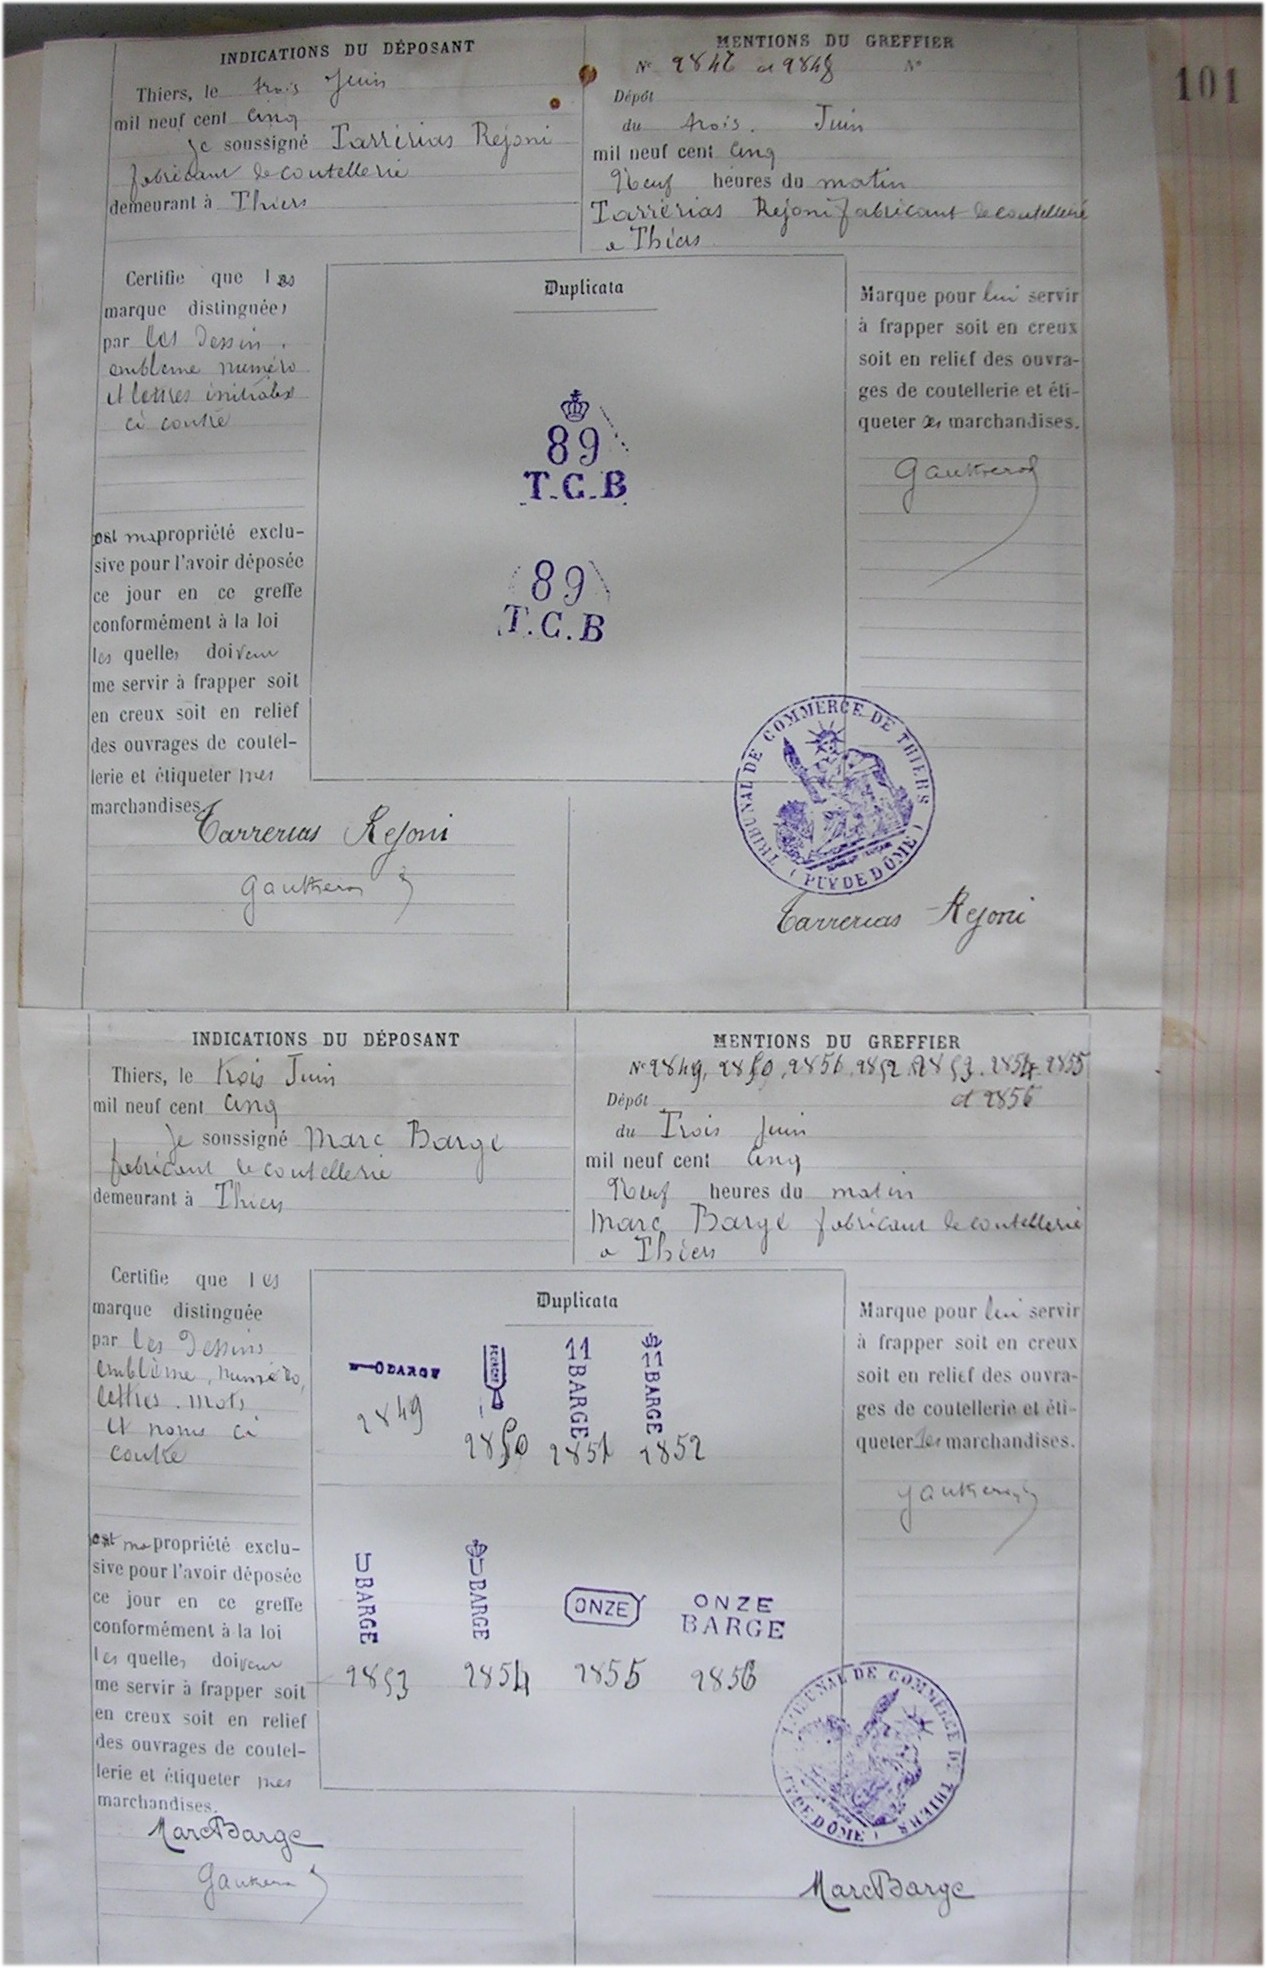 101
INDICATIONS DU DÉPOSANT
Thiers, le trois Juin
mil neuf cent cinq
Je soussigné Tarrérias Rejoni
fabricant de coutellerie
demeurant à Thiers
MENTIONS DU GREFFIER
N° 2847 et 2848 N°
Dépôt
du trois. Juin
mil neuf cent cinq
Neuf heures du matin
Tarrérias Rejoni fabricant de coutellerie
a Thiers
Certifie que les
marque distinguées
par les Dessin.
emblème numéro
et lettres initiales
ci contre
est ma propriété exclu-
sive pour l'avoir déposée
ce jour en ce greffe
conformément à la loi
les quelles doivent
me servir à frapper soit
en creux soit en relief
des ouvrages de coutel-
lerie et étiqueter mes
marchandises.
Duplicata
89
T.C.B
89
T.C.B
Marque pour lui servir
à frapper soit en creux
soit en relief des ouvra-
ges de coutellerie et éti-
queter ses marchandises.
Gautheron
TRIBUNAL DE COMMERCE DE THIERS
(PUY DE DÔME)
Tarrerias Rejoni
Gautheron
Tarrerias Rejoni
INDICATIONS DU DÉPOSANT
Thiers, le trois Juin
mil neuf cent cinq
Je soussigné Marc Barge
fabricant de coutellerie
demeurant à Thiers
MENTIONS DU GREFFIER
N° 2849, 2850, 2851, 2852, 2853, 2854, 2855
et 2856
Dépôt
du Trois Juin
mil neuf cent cinq
Neuf heures du matin
Marc Barge fabricant de coutellerie
a Thiers
Certifie que les
marque distinguée
par les Dessins
emblème, numéro,
lettres. mots
et noms ci
contre
est ma propriété exclu-
sive pour l'avoir déposée
ce jour en ce greffe
conformément à la loi
les quelles doivent
me servir à frapper soit
en creux soit en relief
des ouvrages de coutel-
lerie et étiqueter mes
marchandises.
Duplicata
BARGE
11 BARGE
11 BARGE
2849
2850
2851
2852
U BARGE
U BARGE
ONZE
ONZE
BARGE
2853
2854
2855
2856
Marque pour lui servir
à frapper soit en creux
soit en relief des ouvra-
ges de coutellerie et éti-
queter ses marchandises.
Gautheron
TRIBUNAL DE COMMERCE DE THIERS
(PUY DE DÔME)
Marc Barge
Gautheron
Marc Barge